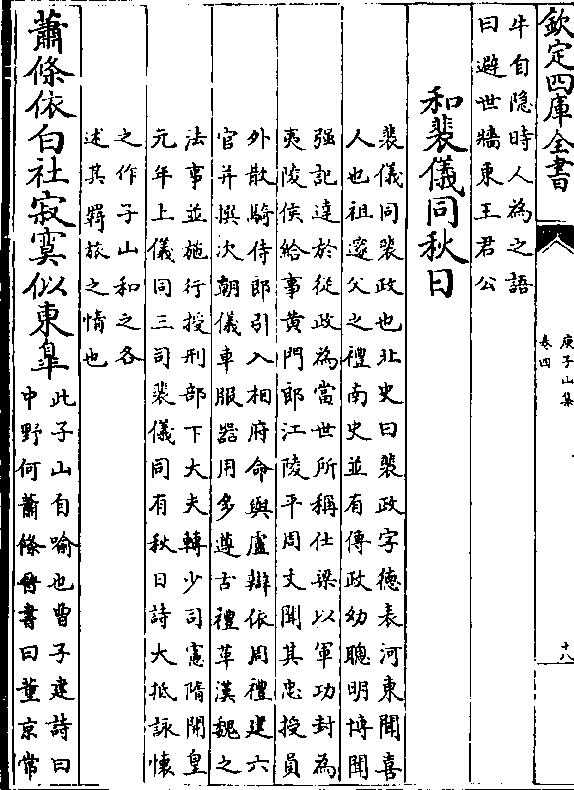 欽定四庫全書
庾子山集
卷四
十八
牛自隐時人為之語
曰避世牆東王君公
和裴儀同秋日
裴儀同裴政也北史曰裴政字德表河東聞喜
人也祖邃父之禮南史並有傳政幼聰明博聞
强記達於從政為當世所稱仕梁以軍功封為
夷陵侯給事黄門郎江陵平周文聞其忠授員
外散騎侍郎引入相府命與盧辯依周禮建六
官并撰次朝儀車服器用多遵古禮革漢魏之
法事並施行授刑部下大夫轉少司憲隋開皇
元年上儀同三司裴儀同有秋日詩大抵詠懐
之作子山和之各
述其羇旅之情也
蕭條依白社寂寞似東皐
此子山自喻也曹子建詩曰
中野何蕭條晉書曰董京常